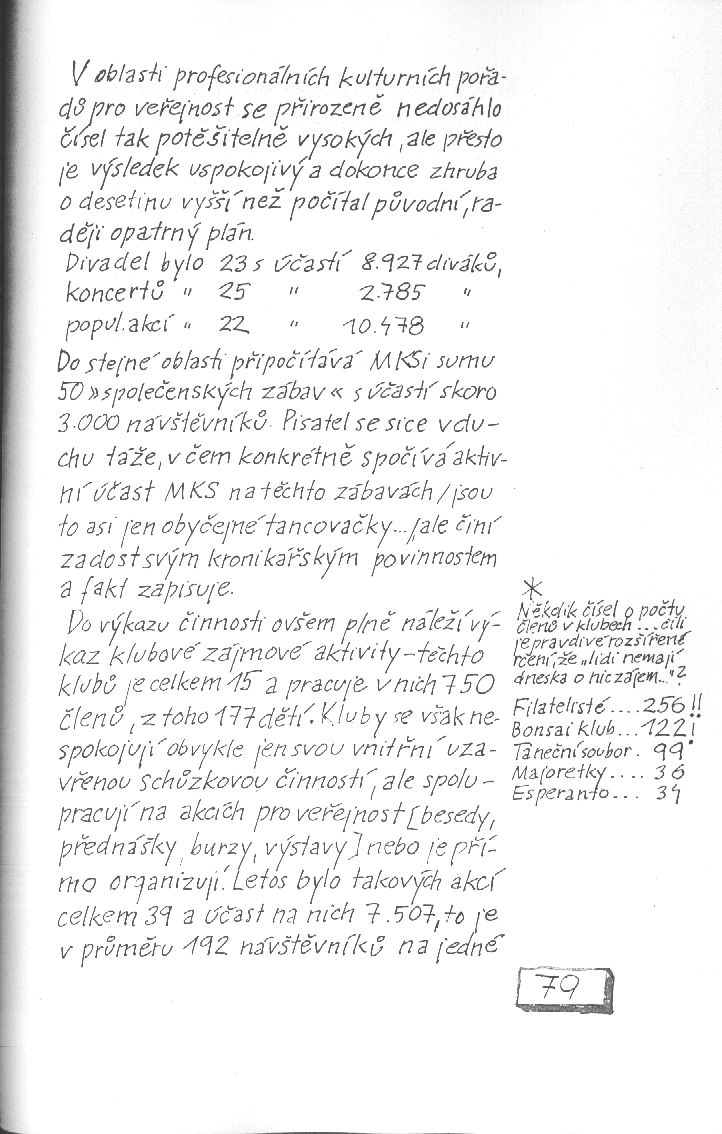 V oblasti profesionálních kulturních pořa-
dů pro veřejnost se přirozeně nedosáhlo
čísel tak potěšitelně vysokých, ale přesto
je výsledek uspokojivý a dokonce zhruba
o desetinu vyšší než počítal původní, ra-
ději opatrný plán.
Divadel bylo 23 s účastí 8.927 diváků,
koncertů " 25 " 2.785 "
popul. akcí " 22 " 10.478 "
Do stejné oblasti připočítává MKSi sumu
50 »společenských zábav« s účastí skoro
3.000 návštěvníků. Pisatel se sice v du-
chu táže, v čem konkrétně spočívá aktiv-
ní účast MKS na těchto zábavách /jsou
to asi jen obyčejné tancovačky.../ale činí
zadost svým kronikářským povinnostem
a fakt zapisuje.
Do výkazu činnosti ovšem plně náleží vý-
kaz klubové zájmové aktivity - těchto
klubů je celkem 15 a pracuje v nich 750
členů, z toho 177 dětí. Kluby se však ne-
spokojují obvykle jen svou vnitřní uza-
vřenou schůzkovou činností, ale spolu-
pracují na akcích pro veřejnost [besedy,
přednášky, burzy, výstavy] nebo je pří-
mo organizují. Letos bylo takových akcí
celkem 39 a účast na nich 7.507, to je
v průměru 192 návštěvníků na jedné
*
Několik čísel o počtu
členů v klubech ... čili
je pravdivé rozšířené
rčení, že „lidi nemají
dneska o nic zájem..."?
Filatelisté .... 256!!
Bonsai klub ... 122!
Taneční soubor . 99
Mažoretky .... 36
Esperanto ... 34
79